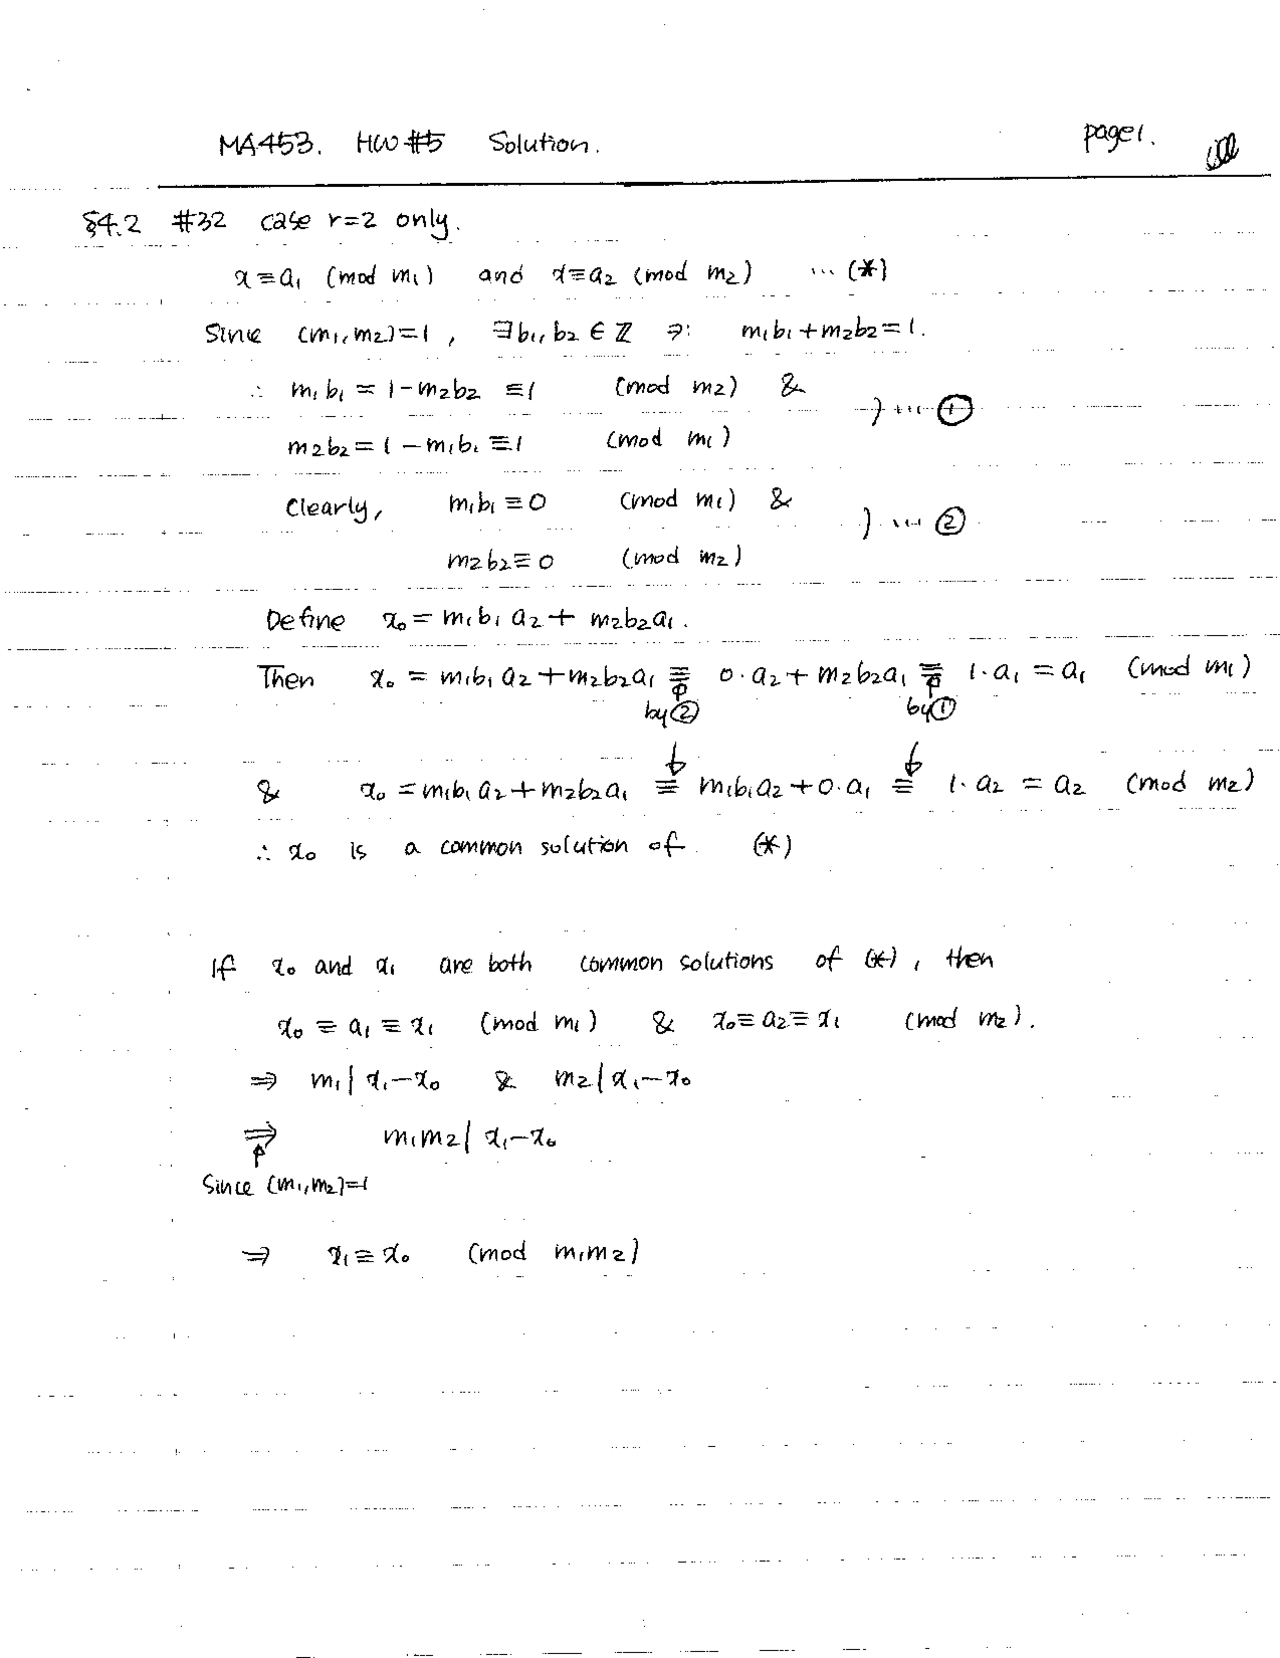 MA453. HW #5 Solution. page1.
§4.2 #32 case r=2 only.
x≡a₁ (mod m₁) and x≡a₂ (mod m₂) ... (*)
Since (m₁,m₂)=1, ∃b₁,b₂ ∈ ℤ ∋: m₁b₁+m₂b₂=1.
∴ m₁b₁ = 1-m₂b₂ ≡1 (mod m₂) &
} ... ①
m₂b₂=1-m₁b₁ ≡1 (mod m₁)
Clearly, m₁b₁≡0 (mod m₁) &
} ... ②
m₂b₂≡0 (mod m₂)
Define x₀=m₁b₁a₂+m₂b₂a₁.
Then x₀ = m₁b₁a₂+m₂b₂a₁ ≡ 0·a₂+m₂b₂a₁ ≡ 1·a₁ = a₁ (mod m₁)
by② by①
& x₀ = m₁b₁a₂+m₂b₂a₁ ≡ m₁b₁a₂+0·a₁ ≡ 1·a₂ = a₂ (mod m₂)
∴ x₀ is a common solution of (*)
If x₀ and x₁ are both common solutions of (*), then
x₀ ≡ a₁ ≡ x₁ (mod m₁) & x₀≡a₂≡x₁ (mod m₂).
⇒ m₁|x₁-x₀ & m₂|x₁-x₀
⇒ m₁m₂|x₁-x₀
Since (m₁,m₂)=1
⇒ x₁≡x₀ (mod m₁m₂)